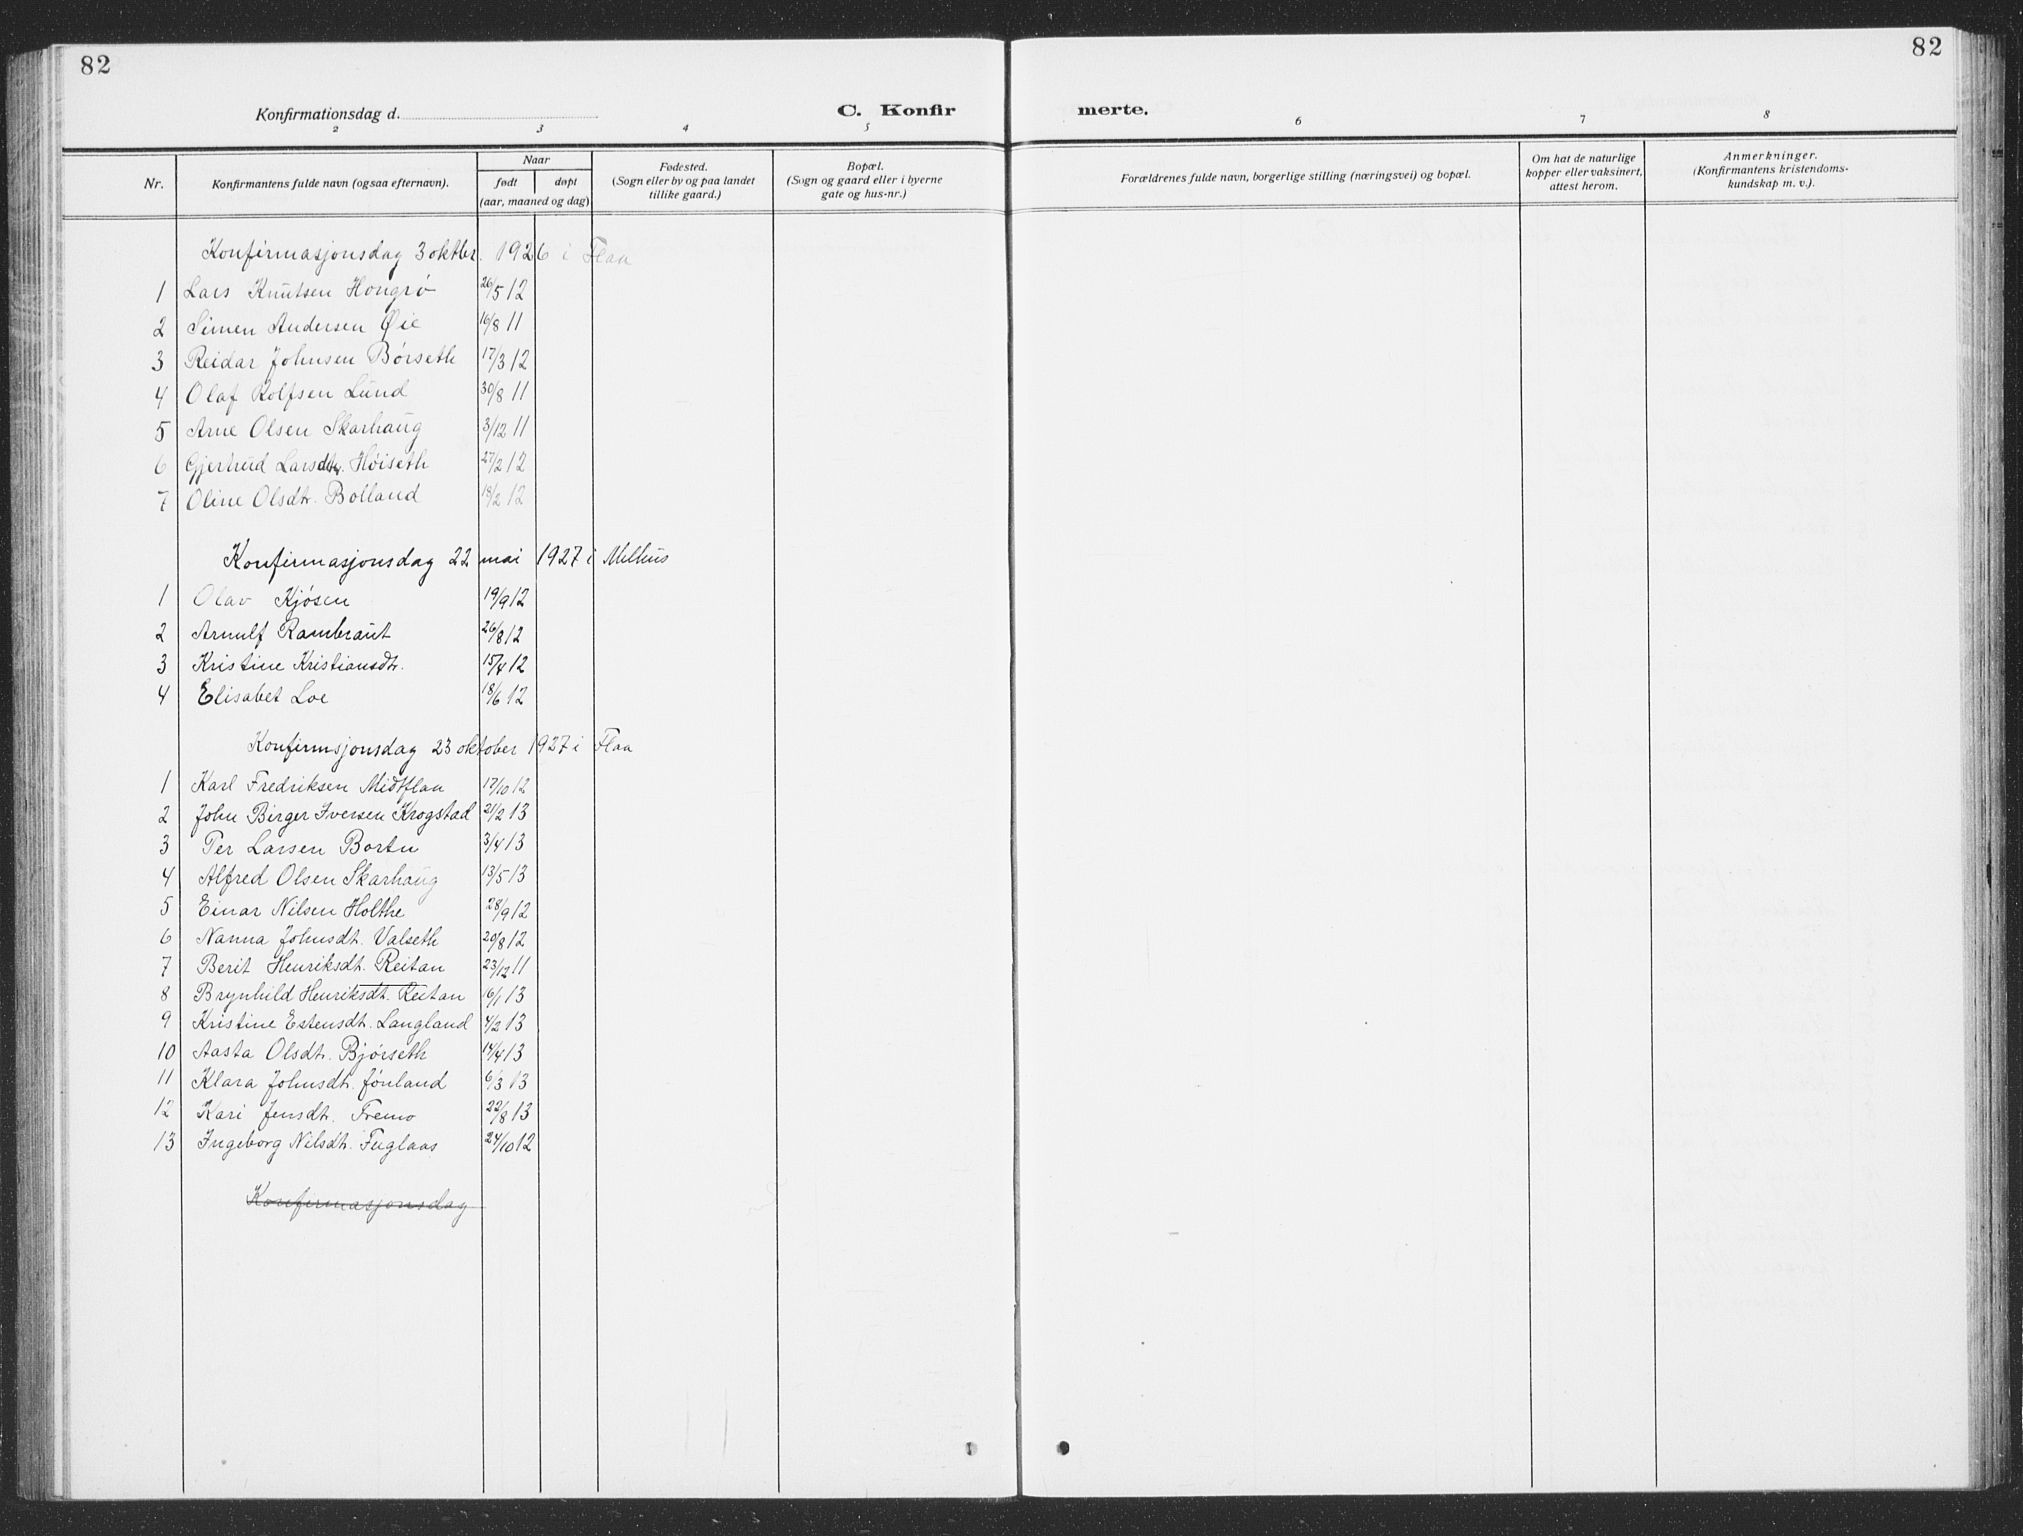 82
82
Konfirmationsdag d.
C. Konfir
merte.
2
3
4
5
6
7
8
Nr.
Konfirmantens fulde navn (ogsaa efternavn).
Naar
født
døpt
(aar, maaned og dag)
Fødested.
(Sogn eller by og paa landet
tillike gaard.)
Bopæl.
(Sogn og gaard eller i byerne
gate og hus-nr.)
Forældrenes fulde navn, borgerlige stilling (næringsvei) og bopæl.
Om hat de naturlige
kopper eller vaksinert,
attest herom.
Anmerkninger.
(Konfirmantens kristendoms-
kundskap m. v.).
Konfirmasjonsdag 3 oktber. 1926 i Flaa
1 Lars Knutsen Hongrø 26/5 12
2 Simen Andersen Øie 16/8 11
3 Reidar Johnsen Børseth 17/3 12
4 Olaf Rolfsen Lund 30/8 11
5 Arne Olsen Skarhaug 3/12 11
6 Gjertrud Larsdtr. Høiseth 27/2 12
7 Oline Olsdtr. Bolland 18/2 12
Konfirmasjonsdag 22 mai 1927 i Melhus
1 Olav Kjøsen 19/9 12
2 Arnulf Rambraut 26/8 12
3 Kristine Kristiansdtr. 15/4 12
4 Elisabet Loe 18/6 12
Konfirmsjonsdag 23 oktober 1927 i Flaa
1 Karl Fredriksen Midtflaa 17/10 12
2 John Birger Iversen Krogstad 21/2 13
3 Per Larsen Bortn 3/4 13
4 Alfred Olsen Skarhaug 13/5 13
5 Einar Nilsen Holthe 28/9 12
6 Nanna Johnsdtr. Valseth 20/8 12
7 Berit Henriksdtr. Reitan 23/12 11
8 Brynhild Henriksdtr. Reitan 16/1 13
9 Kristine Estensdtr. Langland 4/2 13
10 Aasta Olsdtr. Bjørseth 14/4 13
11 Klara Johnsdtr. Jønland 6/3 13
12 Kari Jensdtr. Fremo 22/8 13
13 Ingeborg Nilsdtr. Fuglaas 24/10 12
Konfirmasjonsdag